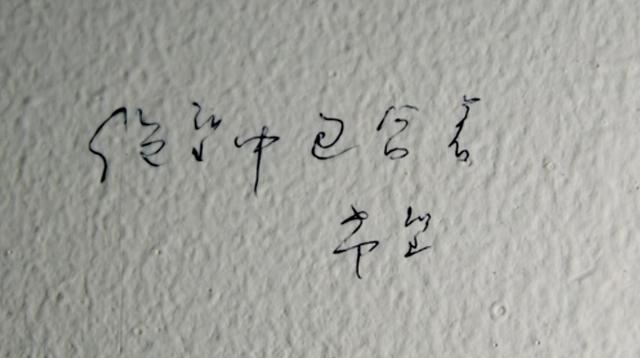 绝望中包含着
希望